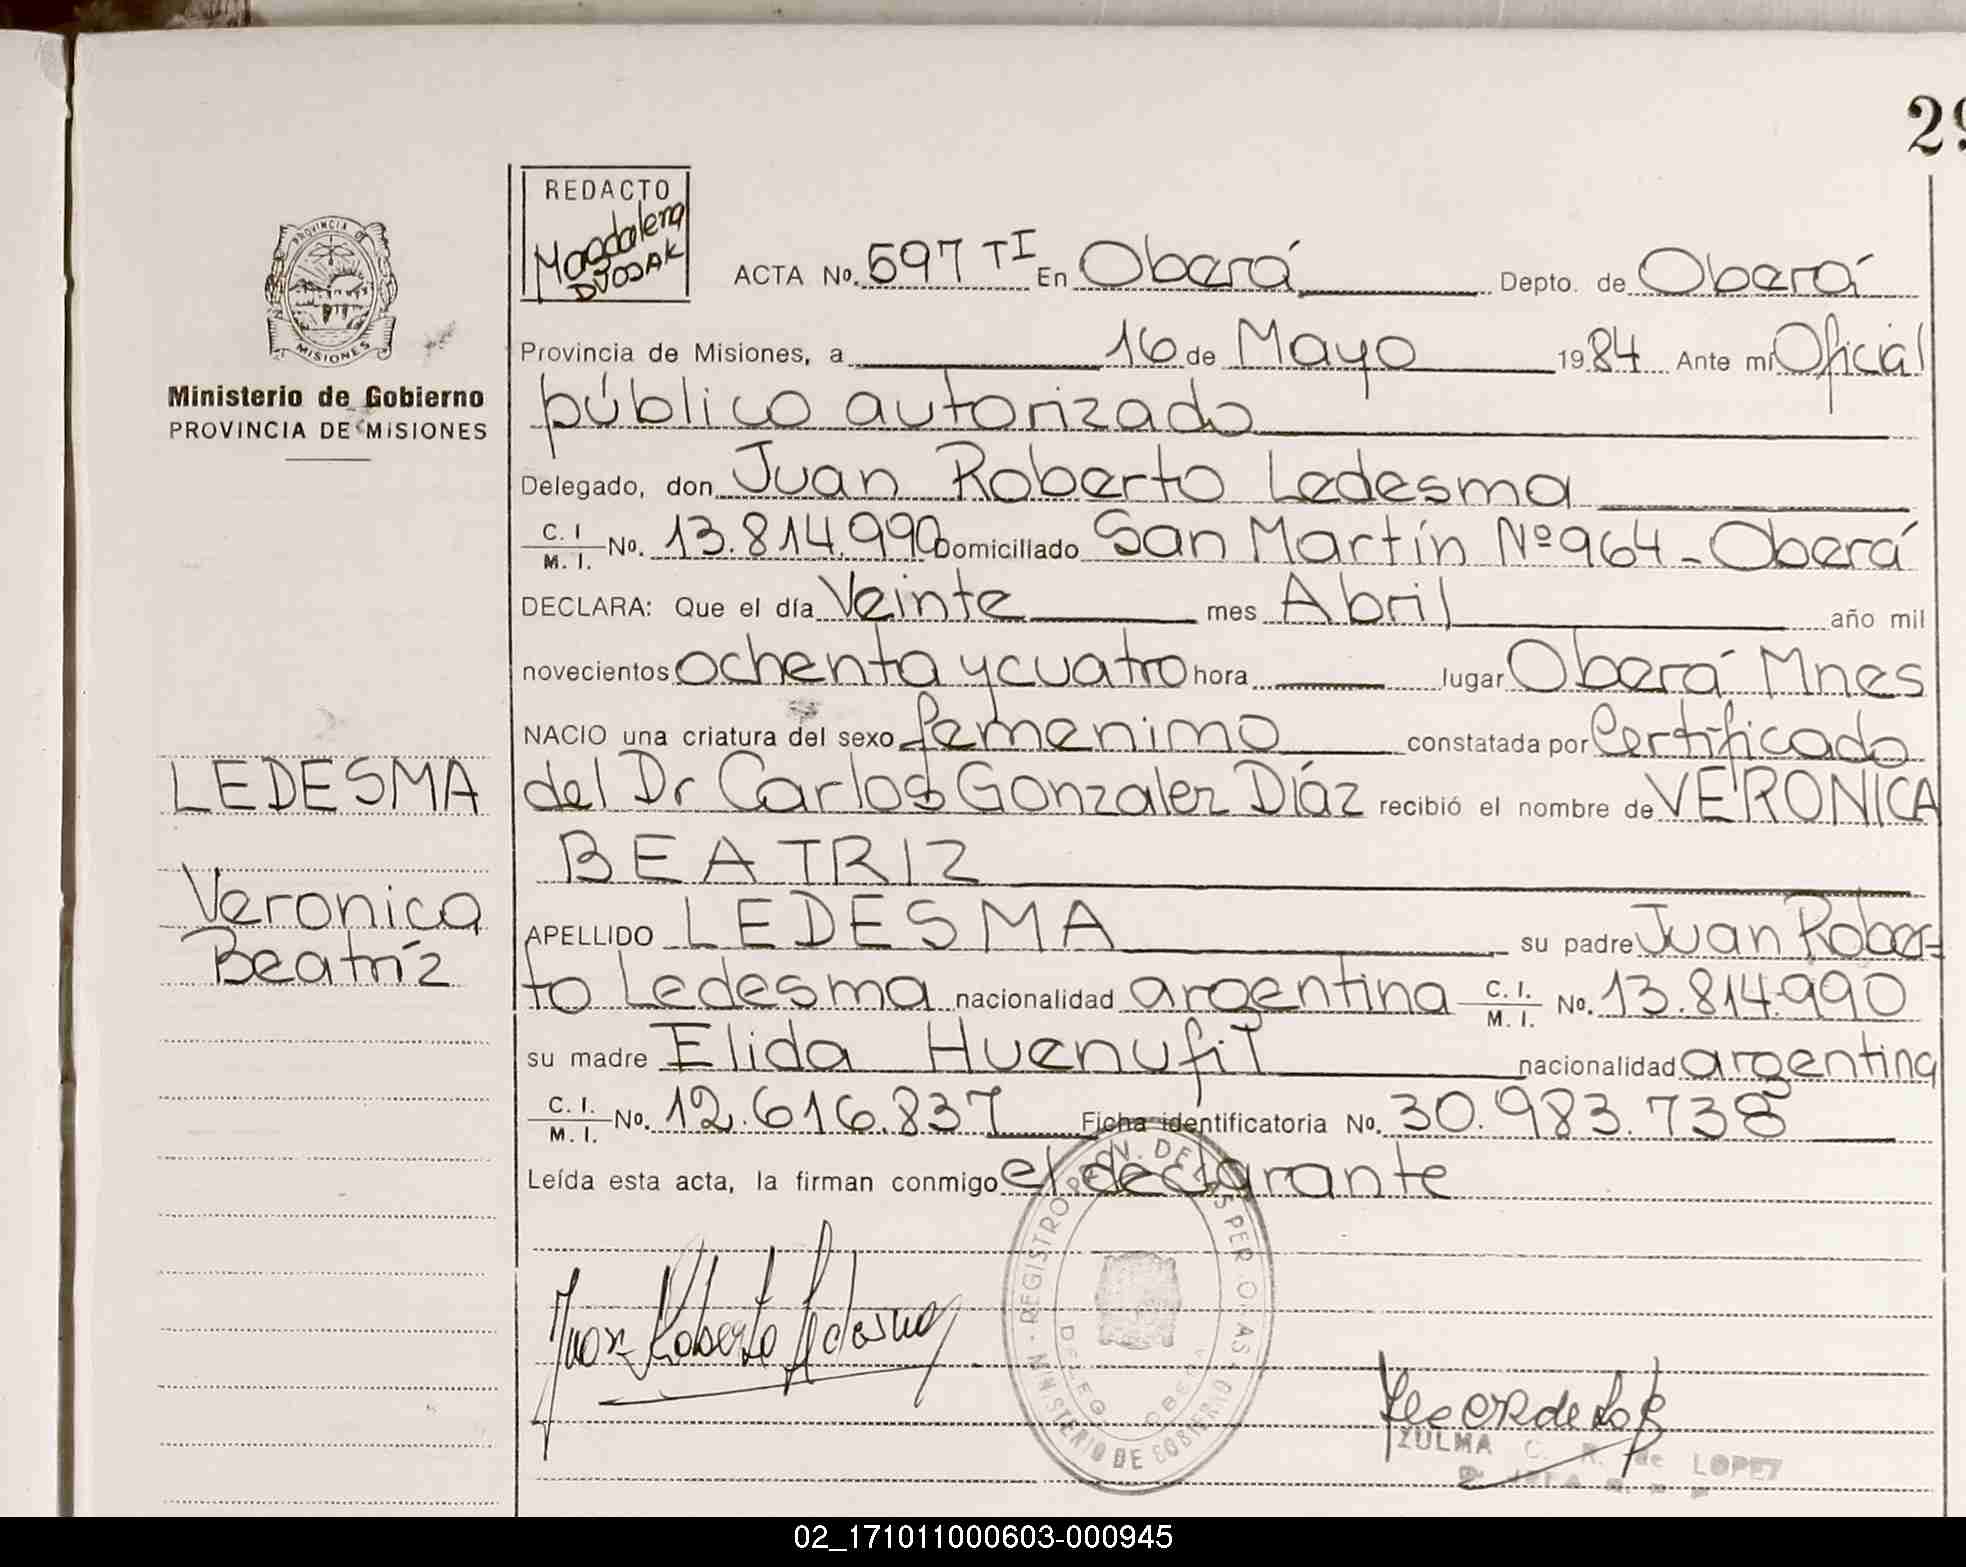 29
REDACTO
Magdalena
DVOSAK
PROVINCIA DE
MISIONES
Ministerio de Gobierno
PROVINCIA DE MISIONES
ACTA No. 597 TI En Oberá Depto. de Oberá
Provincia de Misiones, a 16 de Mayo 1984 Ante mí Oficial
público autorizado
Delegado, don Juan Roberto Ledesma
C. I / M. I. No. 13.814.990 Domicillado San Martín Nº 964 - Oberá
DECLARA: Que el día Veinte mes Abril año mil
novecientos ochenta y cuatro hora lugar Oberá Mnes
NACIO una criatura del sexo femenimo constatada por Certificado
del Dr Carlos Gonzalez Díaz recibió el nombre de VERONICA
BEATRIZ
LEDESMA
Veronica
Beatríz
APELLIDO LEDESMA su padre Juan Rober=
to Ledesma nacionalidad argentina C. I. / M. I. No. 13.814.990
su madre Elida Huenufil nacionalidad argentina
C. I. / M. I. No. 12.616.837 Ficha identificatoria No. 30.983.738
Leída esta acta, la firman conmigo el declarante
Juan Roberto Ledesma
REGISTRO PROV. DE LAS PERSONAS
MINISTERIO DE GOBIERNO
DELEG. OBERA
ZULMA C. R. de LOPEZ
02_171011000603-000945